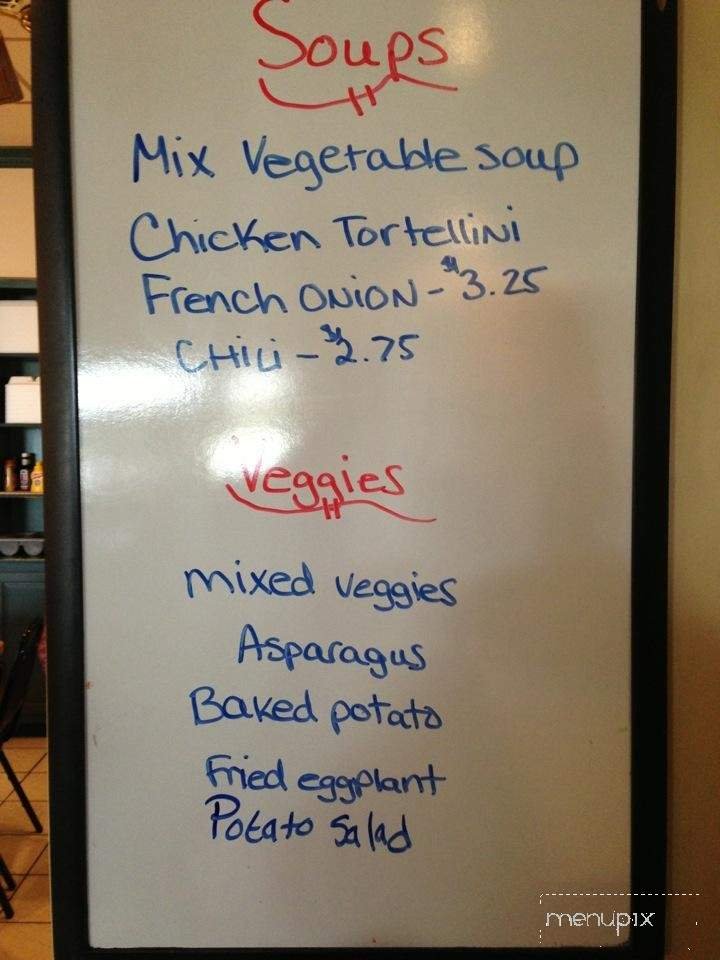 Soups
Mix Vegetable soup
Chicken Tortellini
French ONION - $3.25
CHili - $2.75
Veggies
mixed veggies
Asparagus
Baked potato
Fried eggplant
Potato Salad
menupix